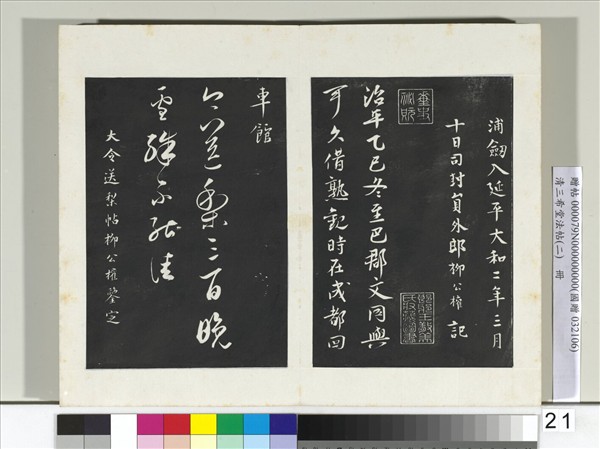 浦劒入延平大和二年三月
十日司封員外郎柳公權記
治平乙巳冬至巴郡文同與
可久借熟觀時在成都回
車館
今送梨三百晚
雪殊不能佳
大令送梨帖柳公權鑒定
贈帖 000079N000000000(國贈 032106)
清三希堂法帖(二) 冊
21